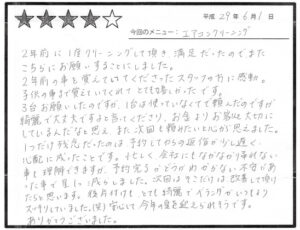 ★★★★☆
平成29年6月1日
今回のメニュー：エアコンクリーニング
2年前に1度クリーニングして頂き、満足だったのでまた
こちらにお願いすることにしました。
2年前の事を覚えていてくださったスタッフの方に感動。
子供の事まで覚えていてくれてとても嬉しかったです。
3台お願いしたのですが、1台は使っていなくて頼んだのですが
綺麗で大丈夫ですよと言ってくださり、お金よりお客様を大切に
しているんだなと思え、また次回も頼みたいと心から思えました。
1つだけ残念だったのは予約してからの返信が少し遅く、
心配に成ったことです。忙しく会社にもなかなか
事も理解できますが、予約完了かどうかわからない不安があ
った事で星1つ減らしました。次回はそこだけは改善して頂け
たらと思います。後片付けもとても綺麗でベランダがいつもより
スッキリしていました。(笑) 安心して今年の夏を迎えられそうです。
ありがとうございました。